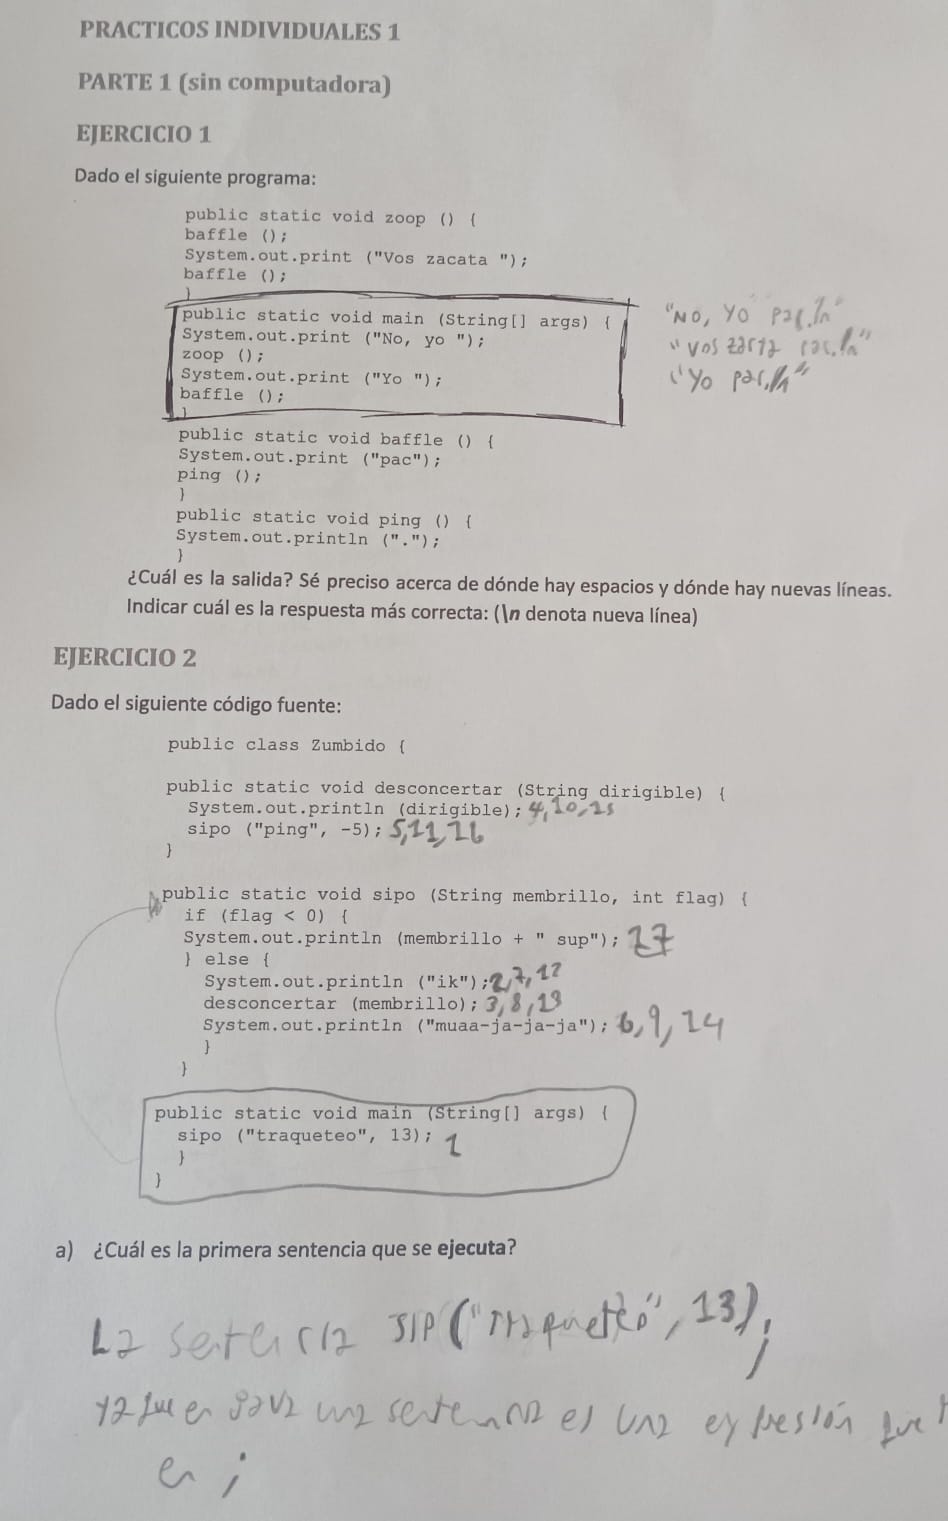 PRACTICOS INDIVIDUALES 1
PARTE 1 (sin computadora)
EJERCICIO 1
Dado el siguiente programa:
public static void zoop () {
baffle ();
System.out.print ("Vos zacata ");
baffle ();
}
public static void main (String[] args) {
System.out.print ("No, yo ");
zoop ();
System.out.print ("Yo ");
baffle ();
}
"No, yo pac.\n"
"vos
"yo pac.\n"
public static void baffle () {
System.out.print ("pac");
ping ();
}
public static void ping () {
System.out.println (".");
}
¿Cuál es la salida? Sé preciso acerca de dónde hay espacios y dónde hay nuevas líneas.
Indicar cuál es la respuesta más correcta: (\n denota nueva línea)
EJERCICIO 2
Dado el siguiente código fuente:
public class Zumbido {
public static void desconcertar (String dirigible) {
System.out.println (dirigible); 4,10,15
sipo ("ping", -5); 5,11,16
}
public static void sipo (String membrillo, int flag) {
if (flag < 0) {
System.out.println (membrillo + " sup"); 17
} else {
System.out.println ("ik"); 2,7,12
desconcertar (membrillo); 3,8,13
System.out.println ("muaa-ja-ja-ja"); 6,9,14
}
}
public static void main (String[] args) {
sipo ("traqueteo", 13); 1
}
}
a) ¿Cuál es la primera sentencia que se ejecuta?
La sentencia SIP("traqueteo", 13);
ya que en java una sentencia es una expresión que
en ;